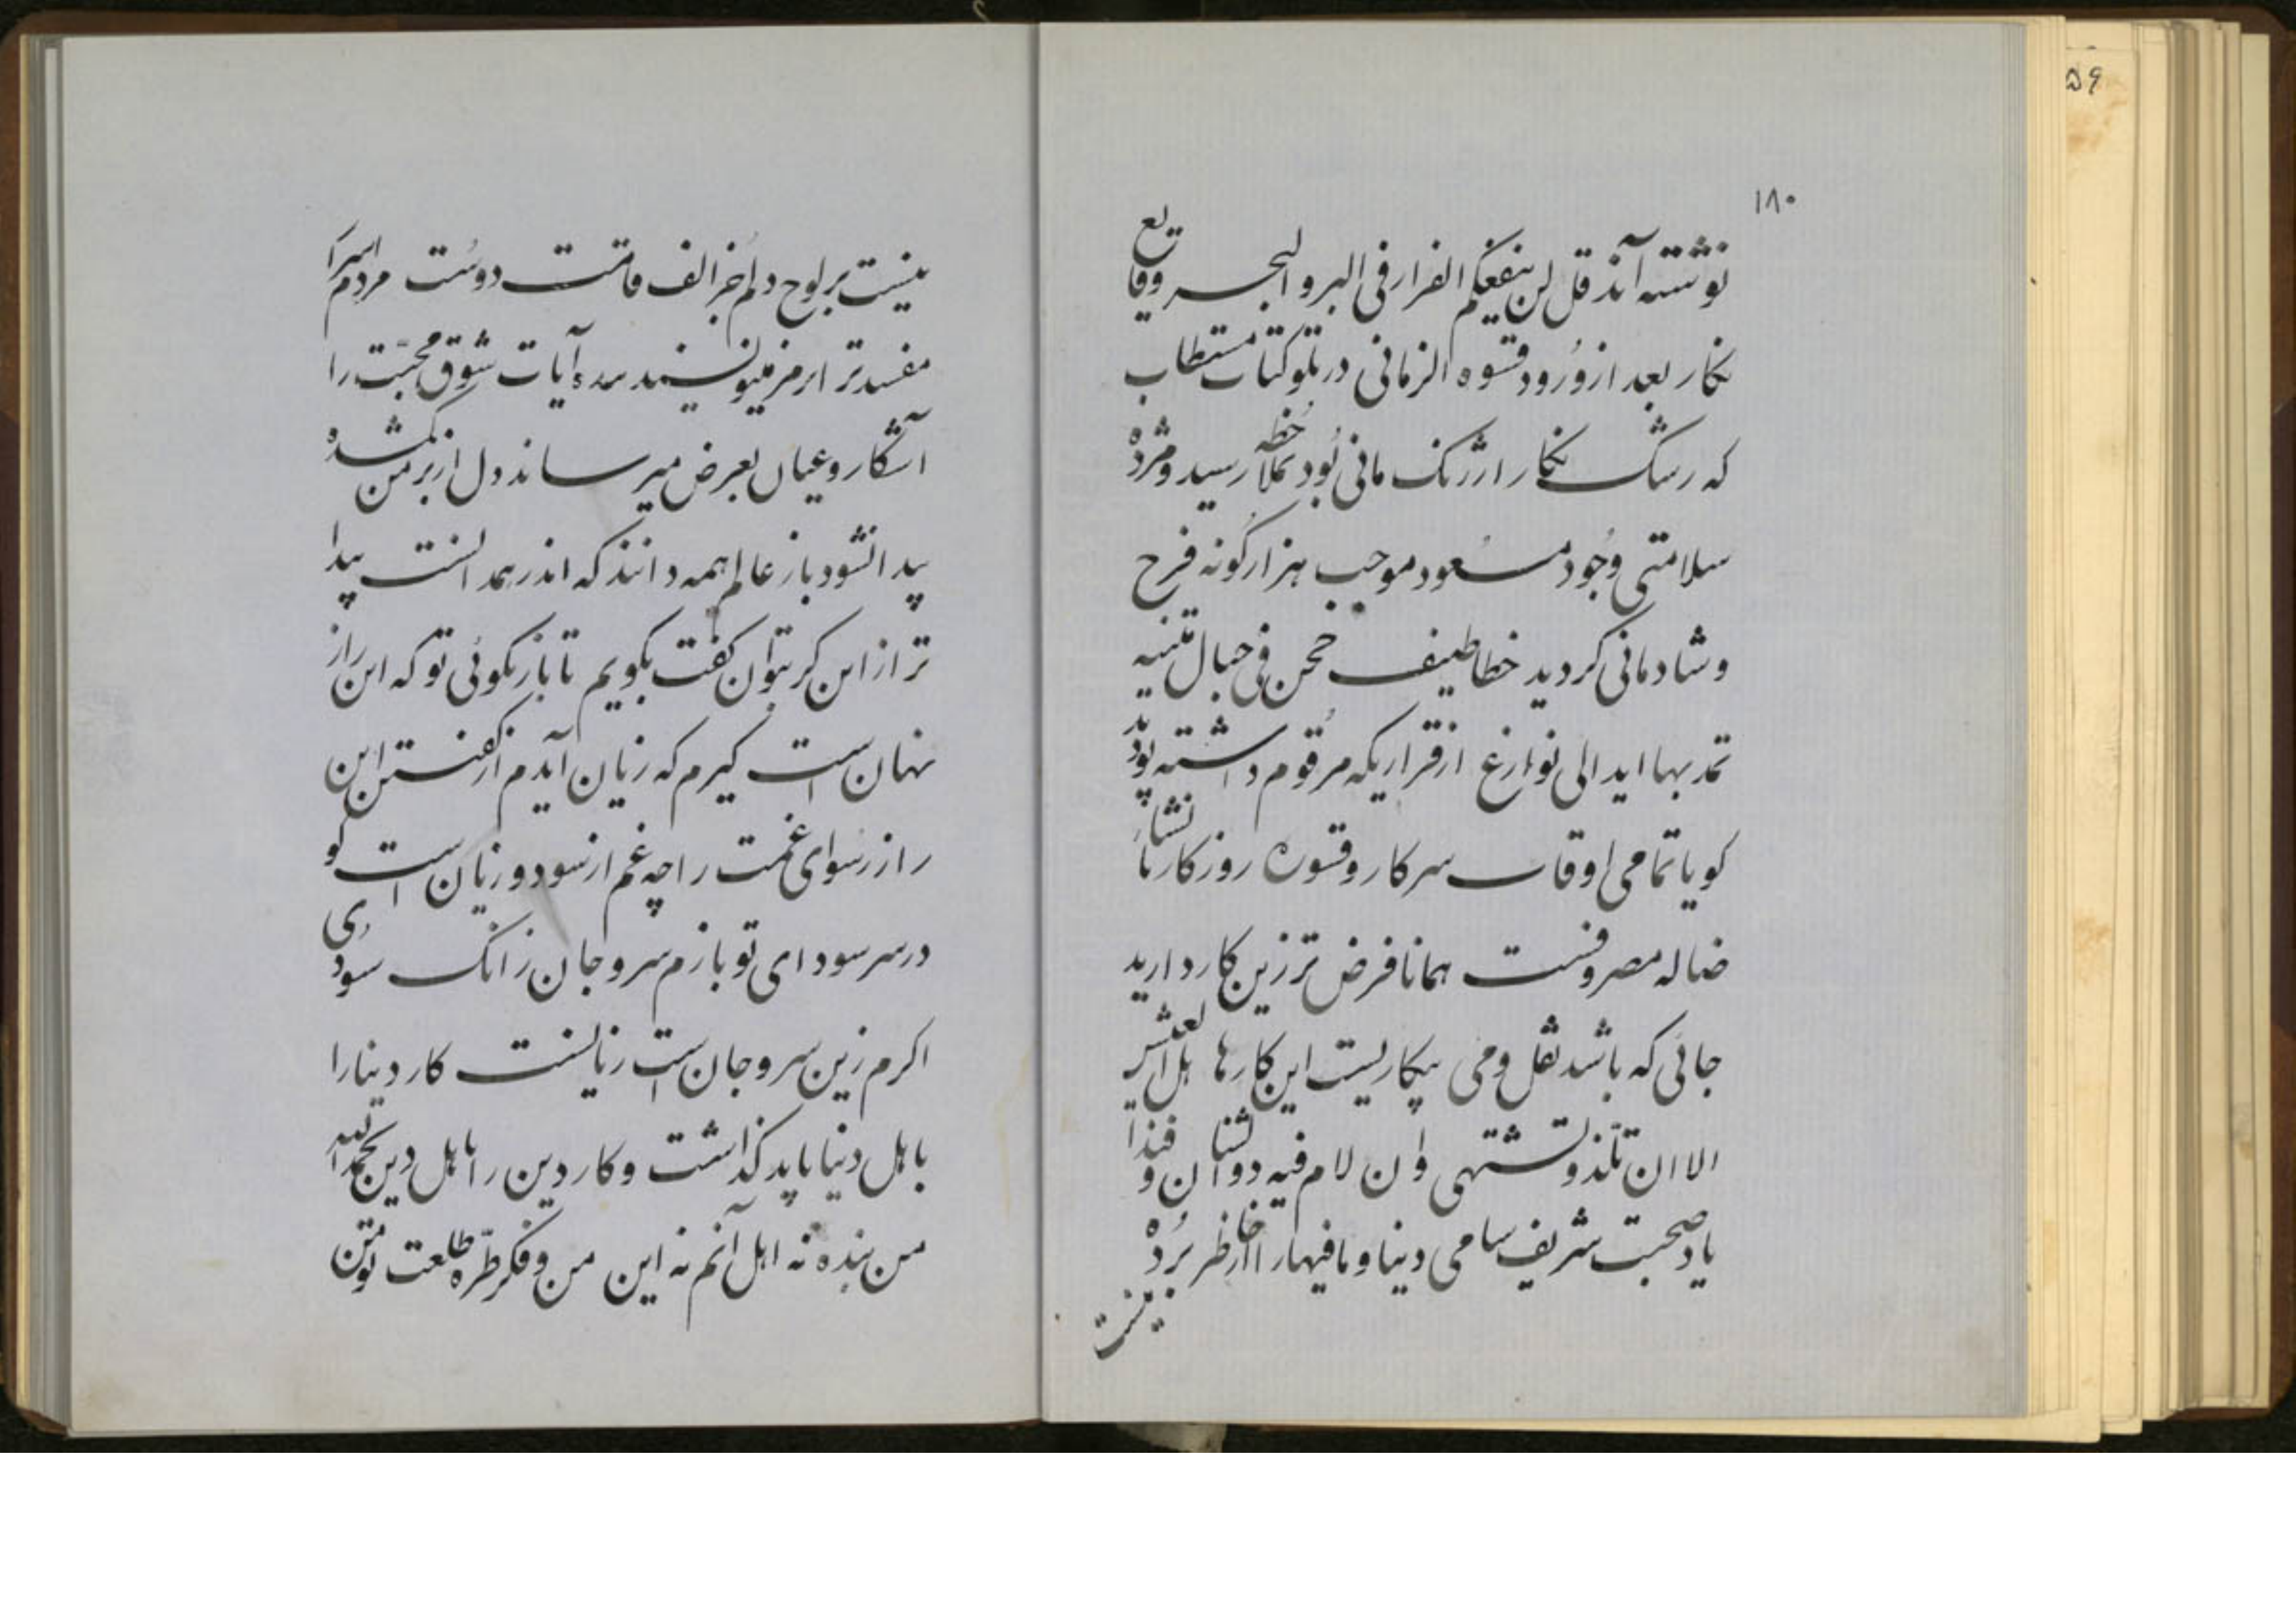 ۱۸۰
نوشته‌اند قل لن ینفعکم الفرار فی البر و البحر وقایع
نکار بعد از ورود قسوه الزمانی در تلو کتاب مستطاب
که رشک نکار ارژنک مانی بود بملاحظه رسید و مژده
سلامتی وجود مسعود موجب هزار کونه فرح
و شادمانی کردید خطاطیف حجن فی حبال متینه
تمد بها اید الی نوازع از قراریکه مرقوم داشته بودید
کویا تمامی اوقات سرکار و قسوره روزکار با نشاء
ضاله مصروفست همانا فرض‌تر زین کار دارید
جائی که باشد نقل و می بیکاریست این کارها هل العیش
الا ان تلذ و تشتهی و ان لام فیه ذو الشنان و فندا
یاد صحبت شریف سامی دنیا و مافیها را از خاطر برده
نیست
۵۶
نیست بر لوح دلم جز الف قامت دوست مردم اسرا
مفسدتر از رمز مینویسند بنده آیات شوق محبت را
آشکار و عیان بعرض میرساند دل از بر من کمشده
پیدا نشود باز عالم همه دانند که اندر همدانست پیدا
تر از این کر بتوان کفت بکویم تا باز نکوئی تو که این راز
نهان است کیرم که زیان آیدم از کفتن این
راز رسوای غمت را چه غم از سود و زیان است کو
در سر سودای تو بازم سر و جان زانک سودی
اکرم زین سر و جان است زیانست کار دنیا را
باهل دنیا باید کذاشت و کار دین را باهل دین بحمد الله
من بنده نه اهل آنم نه این من و فکر طره طلعت تو من